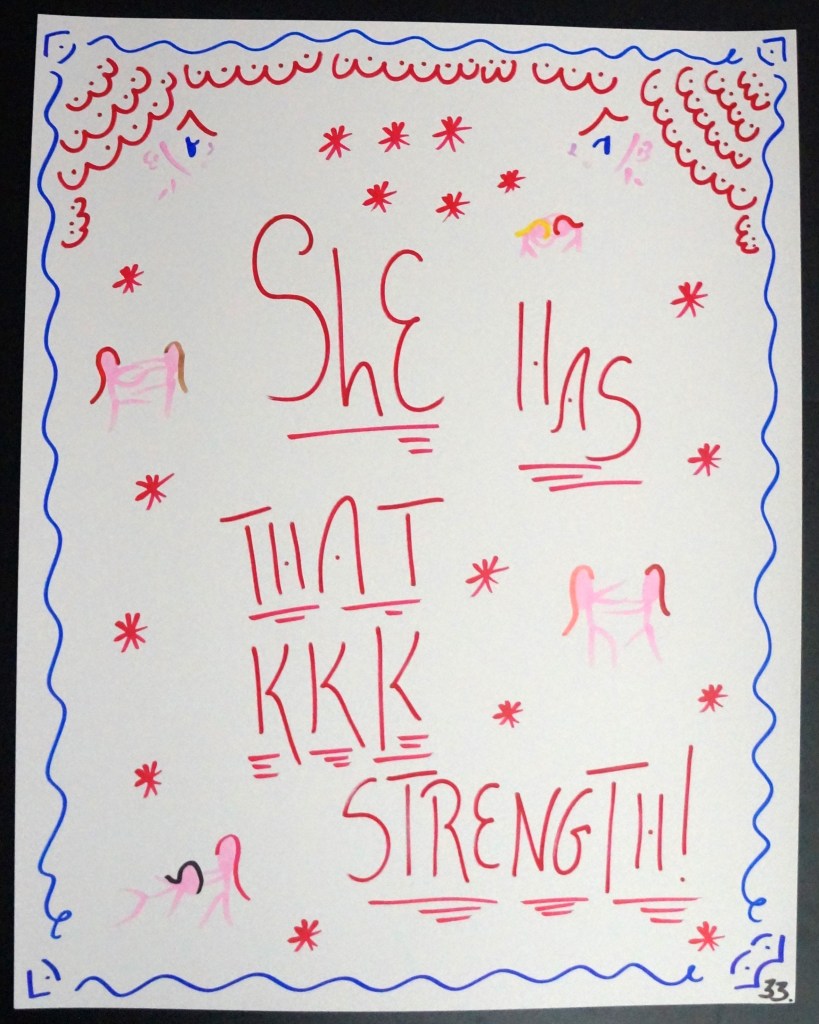 ShE HAS
THAT
KKK
STRENGTH!
33.